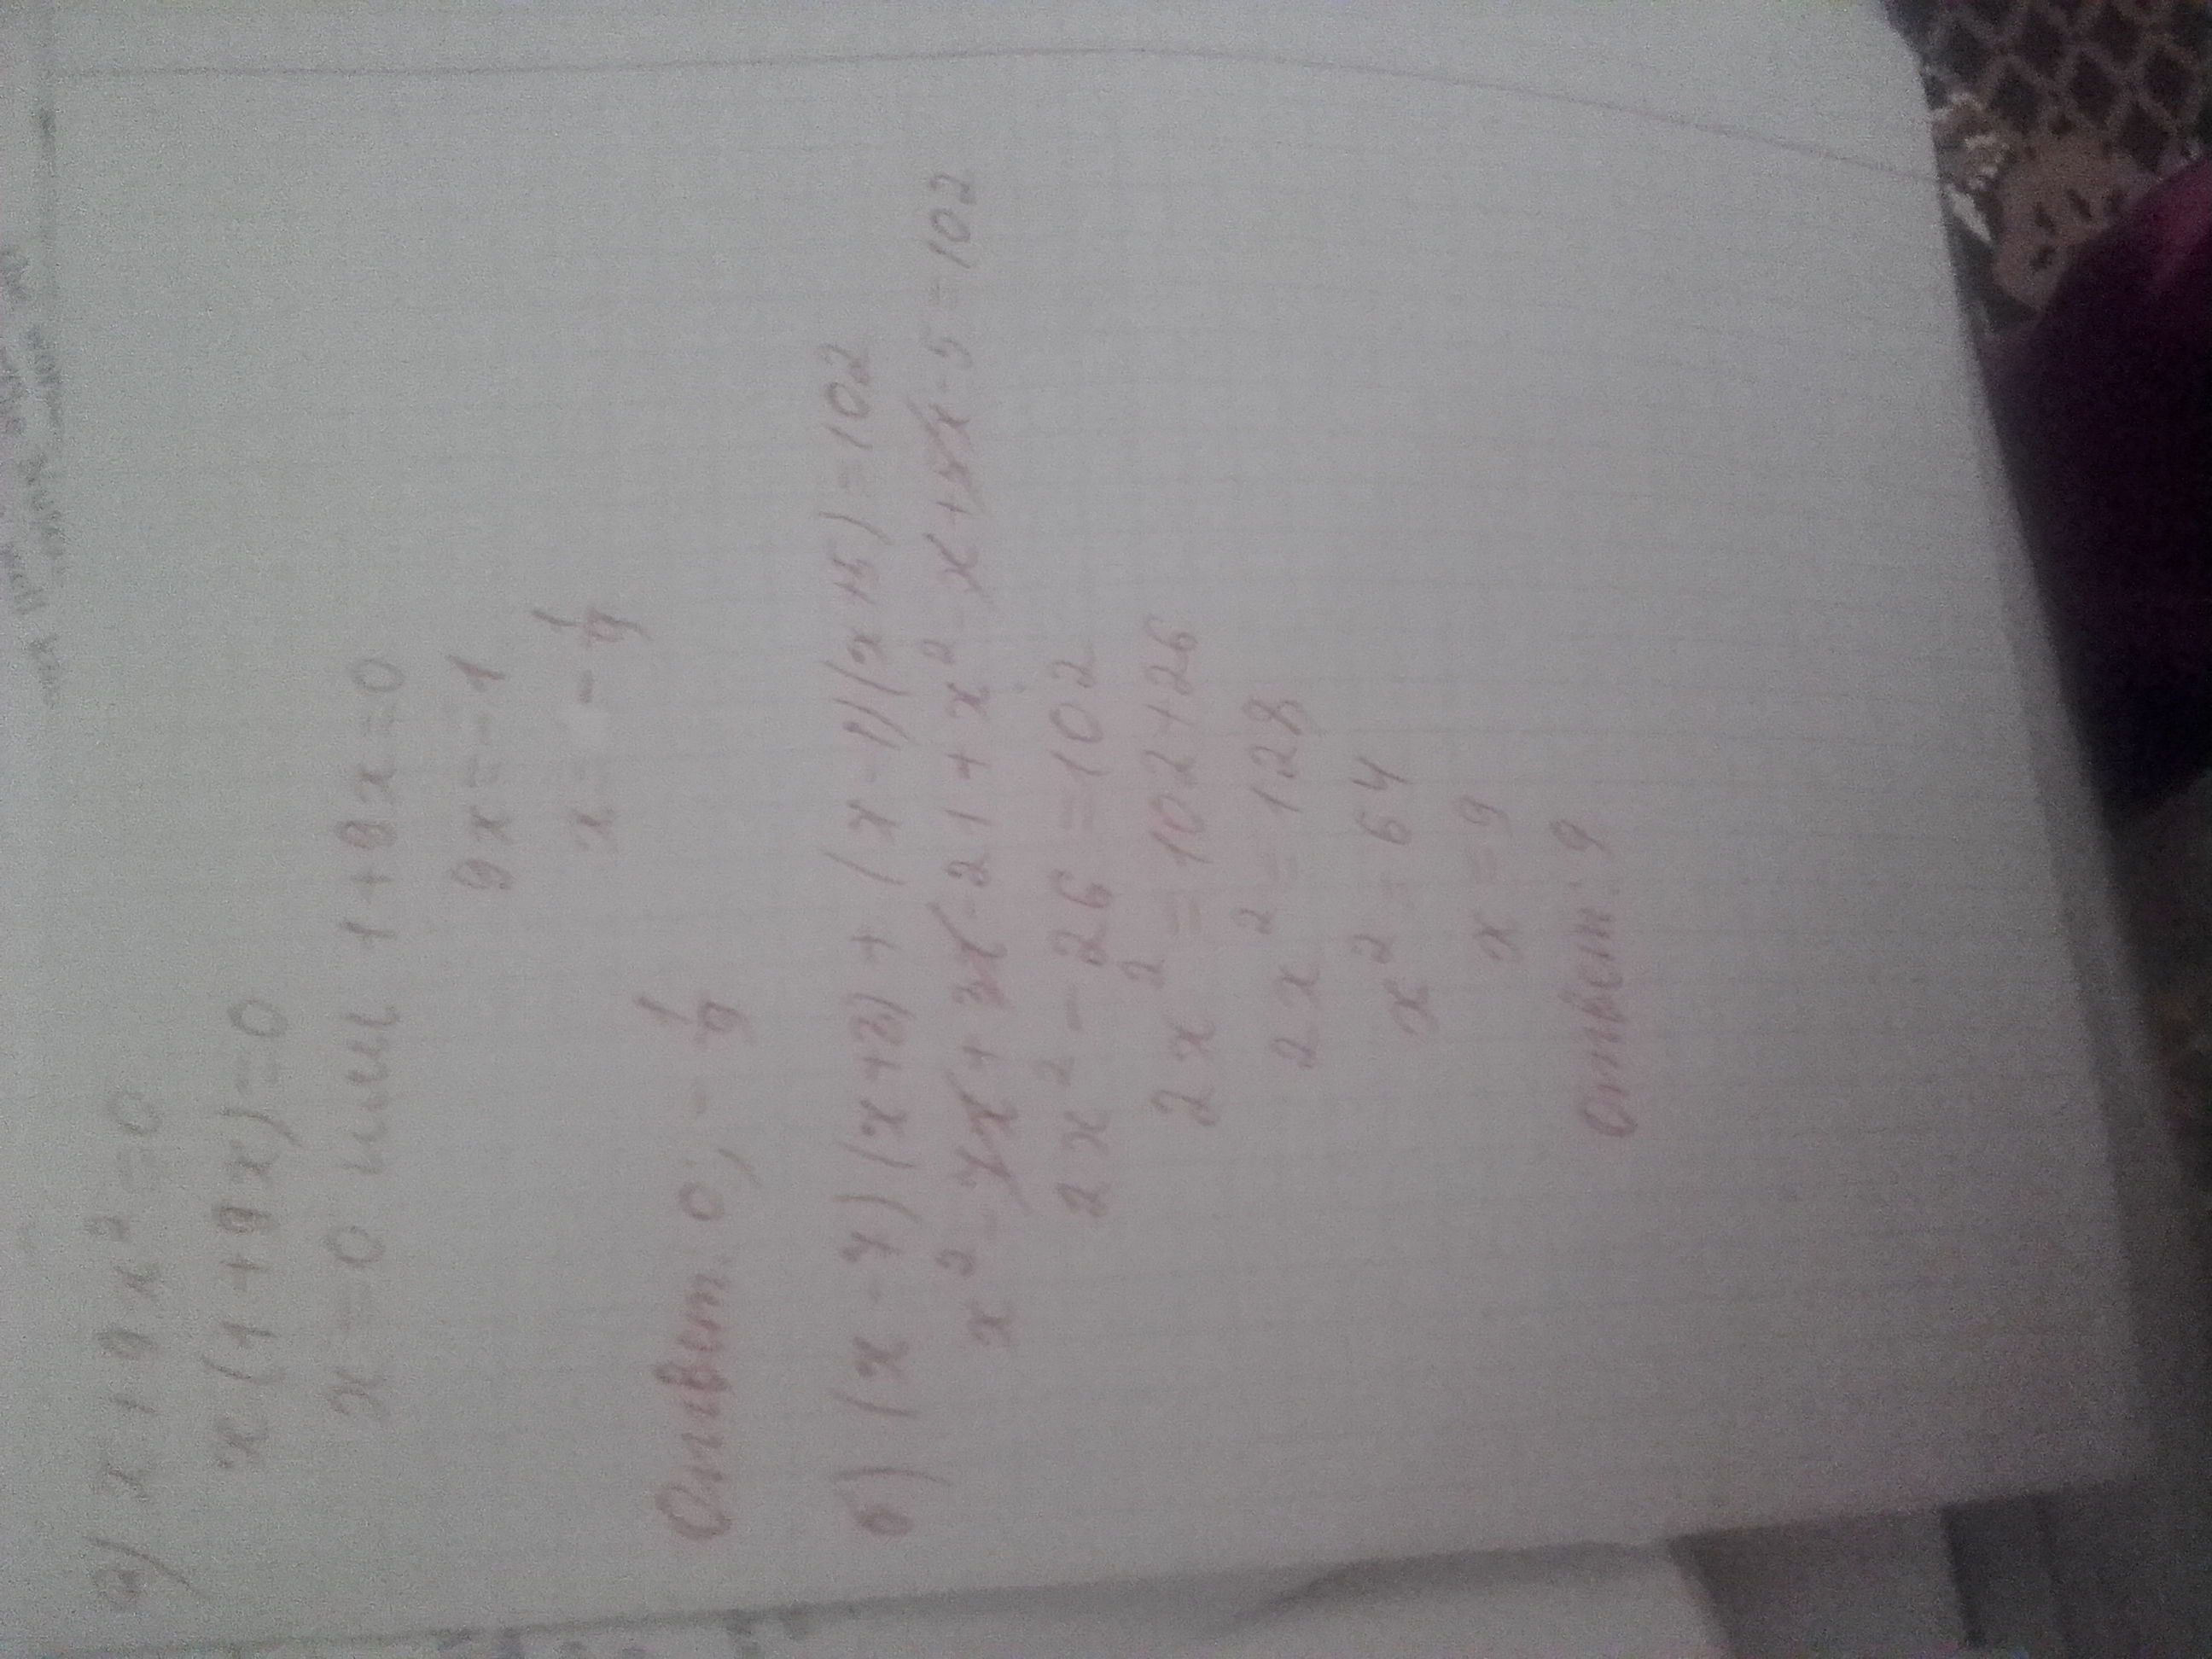 а) x + 9x² = 0
x(1 + 9x) = 0
x = 0 или 1 + 9x = 0
9x = -1
x = -1/9
Ответ: 0; -1/9
б) (x - 7)(x + 3) + (x - 1)(x + 5) = 102
x² - 7x + 3x - 21 + x² - x + 5x - 5 = 102
2x² - 26 = 102
2x² = 102 + 26
2x² = 128
x² = 64
x = 9
Ответ: 9